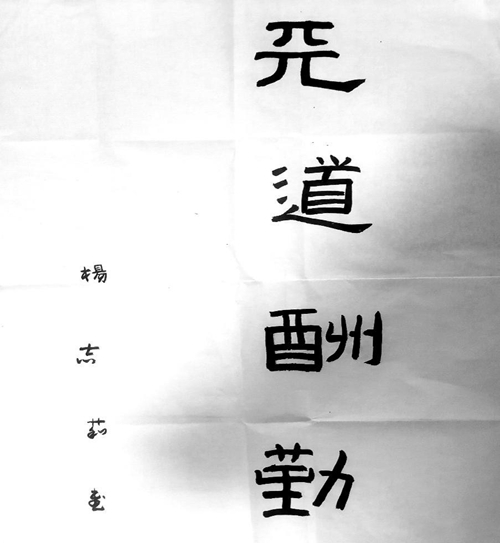 天道酬勤
楊志莉書